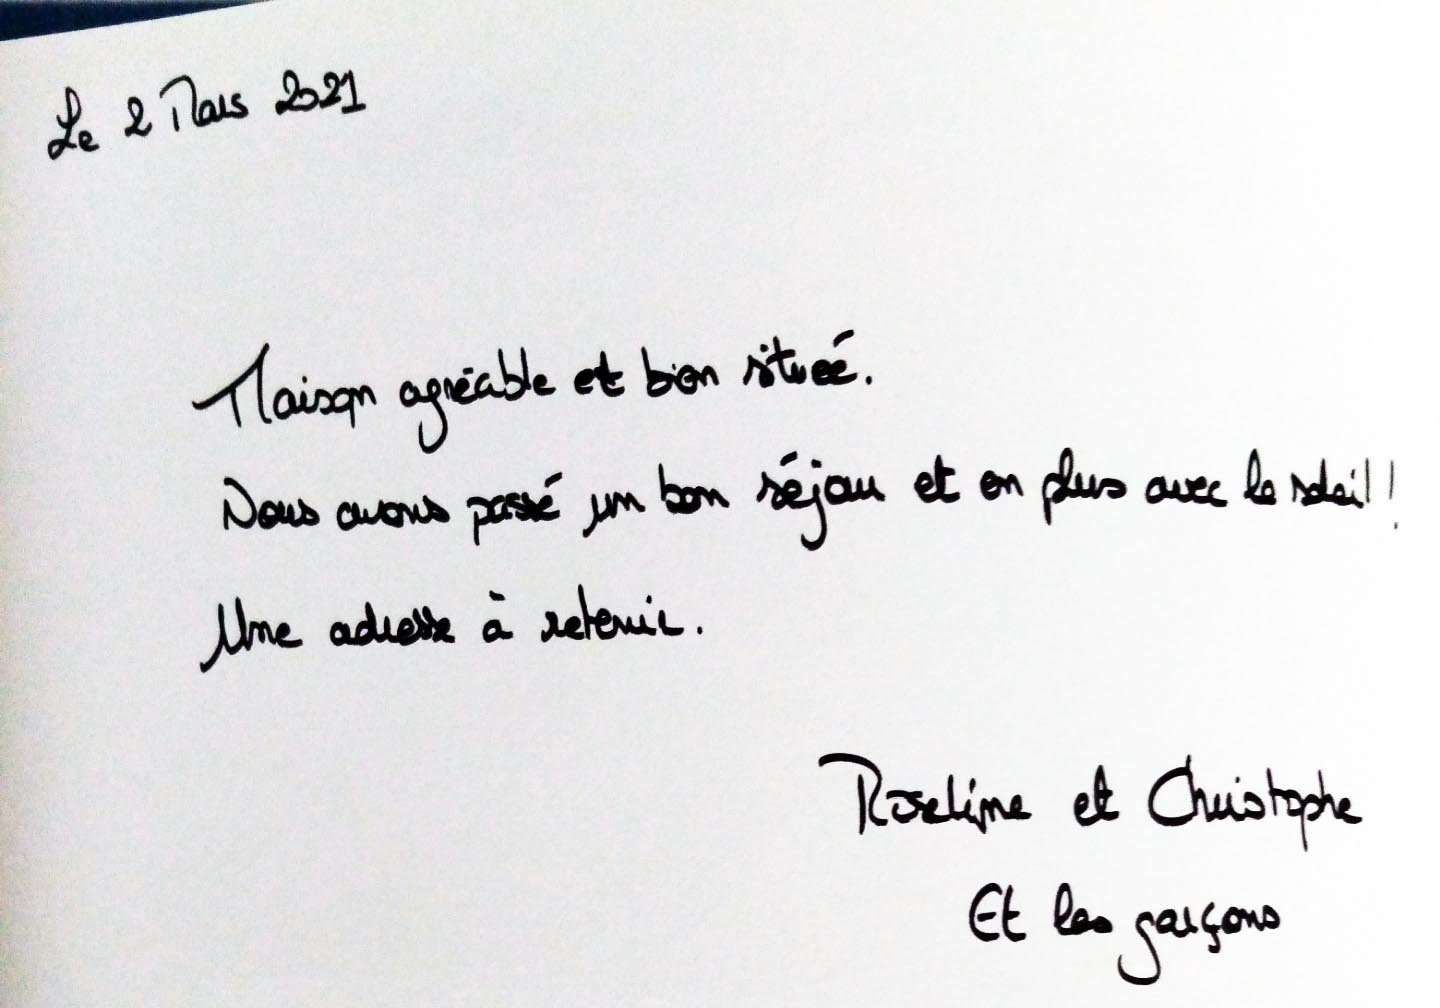 Le 2 Mars 2021
Maison agréable et bien située.
Nous avons passé un bon séjour et en plus avec le soleil !
Une adresse à retenir.
Roseline et Christophe
Et les garçons